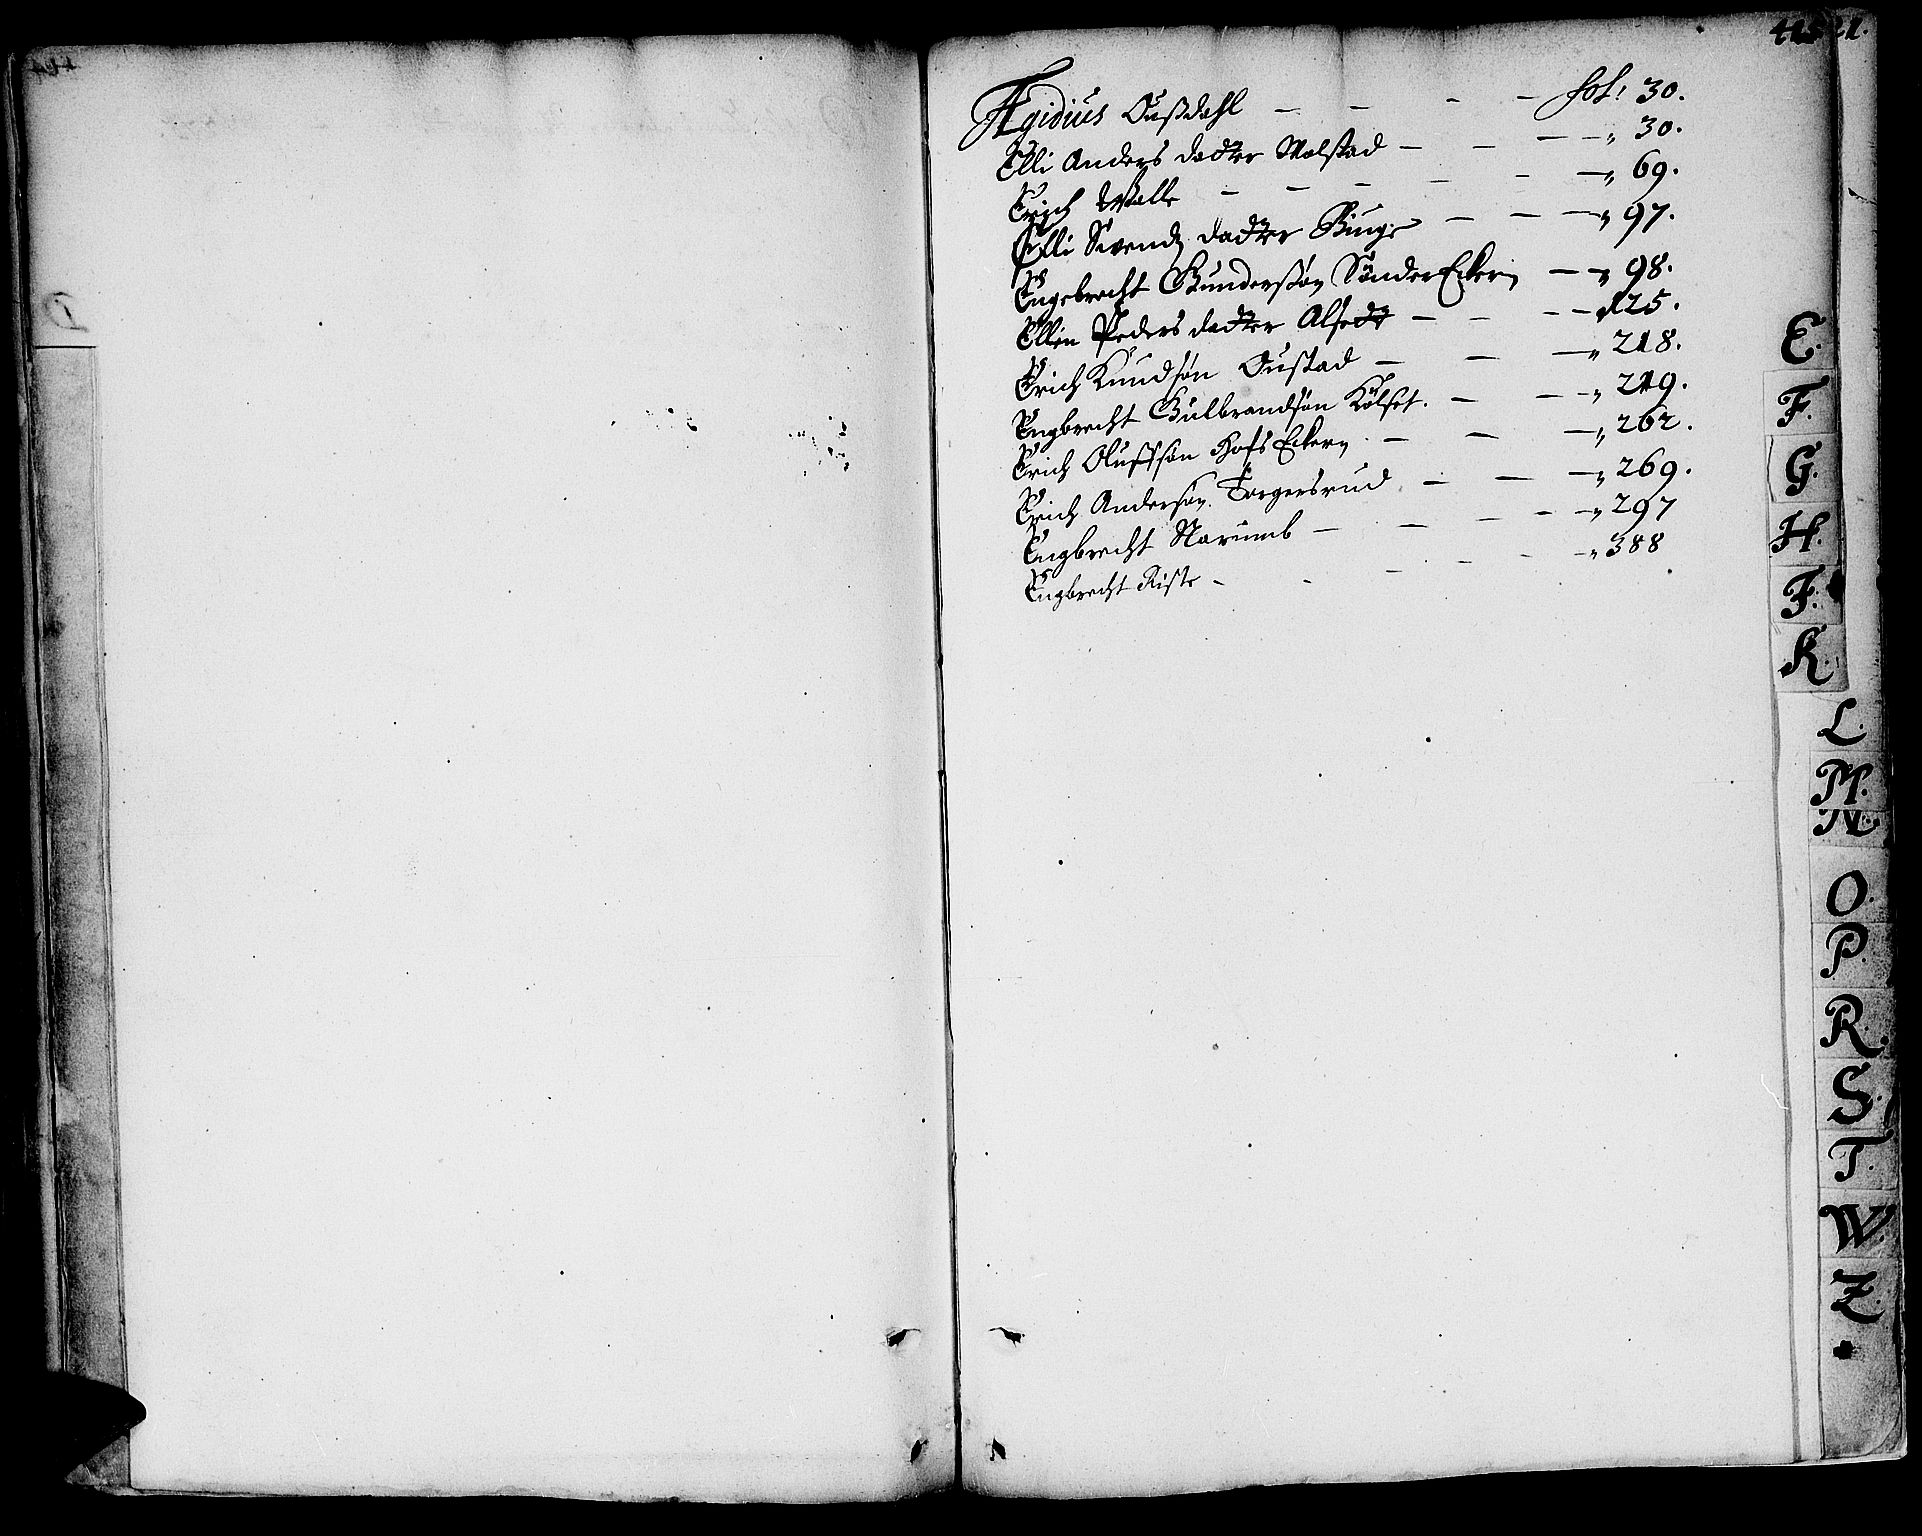 Ægidius Oußdahl — — — — fol: 30.
Elli Anders datter Molstad — — — — „ 30.
Erich Walle — — — — — — „ 69.
Elli Svends datter Binge — — — „ 97.
Engebrecht Gunderßøn SønderEckern — — „ 98.
Ellen Peders datter Alsedt — — — — „ 125.
Erich Knudsøn Oustad — — — „ 218.
Engbrecht Gulbrandsøn Kölset. — — — „ 219.
Erich Olufssøn Hofs Eckern — — — „ 262.
Erich Andersøn Torgersrud — — — „ 269.
Engbrecht Narumb — — — — — „ 297
Engbrecht Riste — — — — — „ 388
E.
F.
G.
H.
J.
K.
L.
M.
N.
O.
P.
R.
S.
T.
W.
Z.